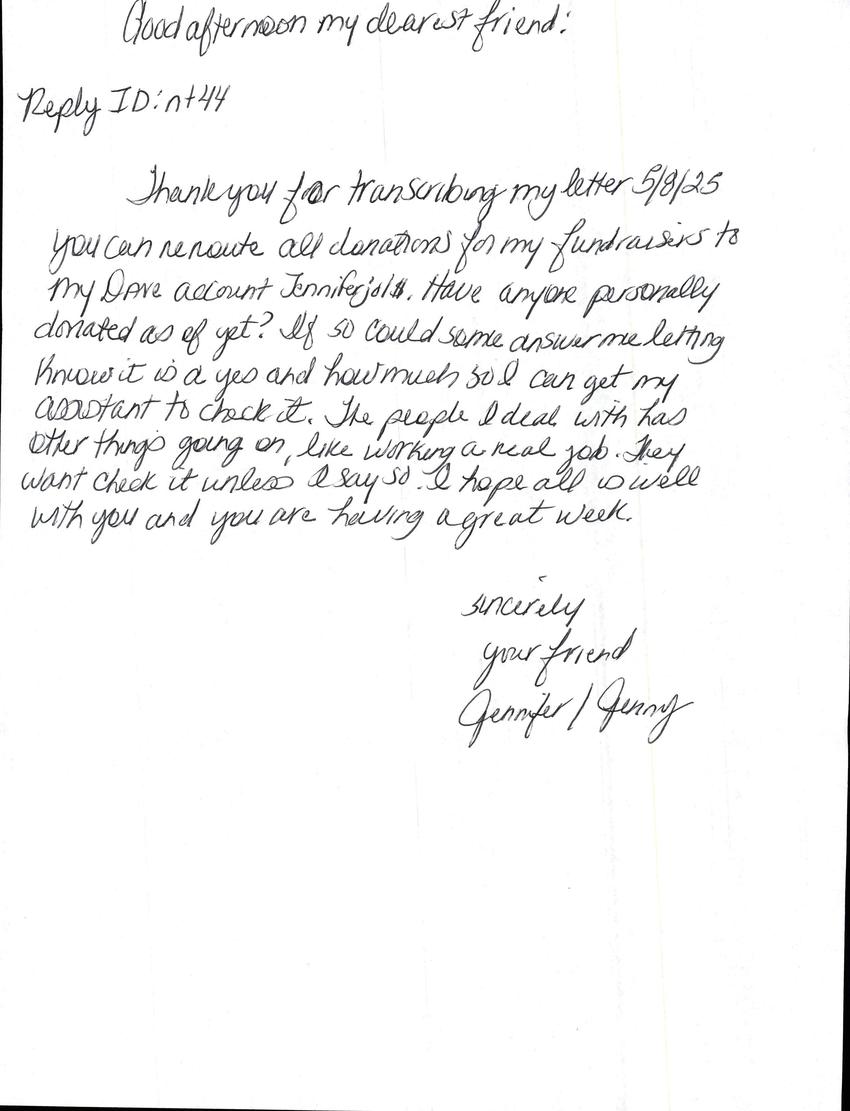 Good afternoon my dearest friend:
Reply ID: nt44
Thank you for transcribing my letter 5/8/25
you can reroute all donations for my fundraisers to
my Dave account Jenniferjol$. Have anyone personally
donated as of yet? If so could some answer me letting
know it is a yes and how much so I can get my
assistant to check it. The people I deal with has
other things going on, like working a real job. They
want check it unless I say so. I hope all is well
with you and you are having a great week.
sincerely
your friend
Jennifer / Jenny